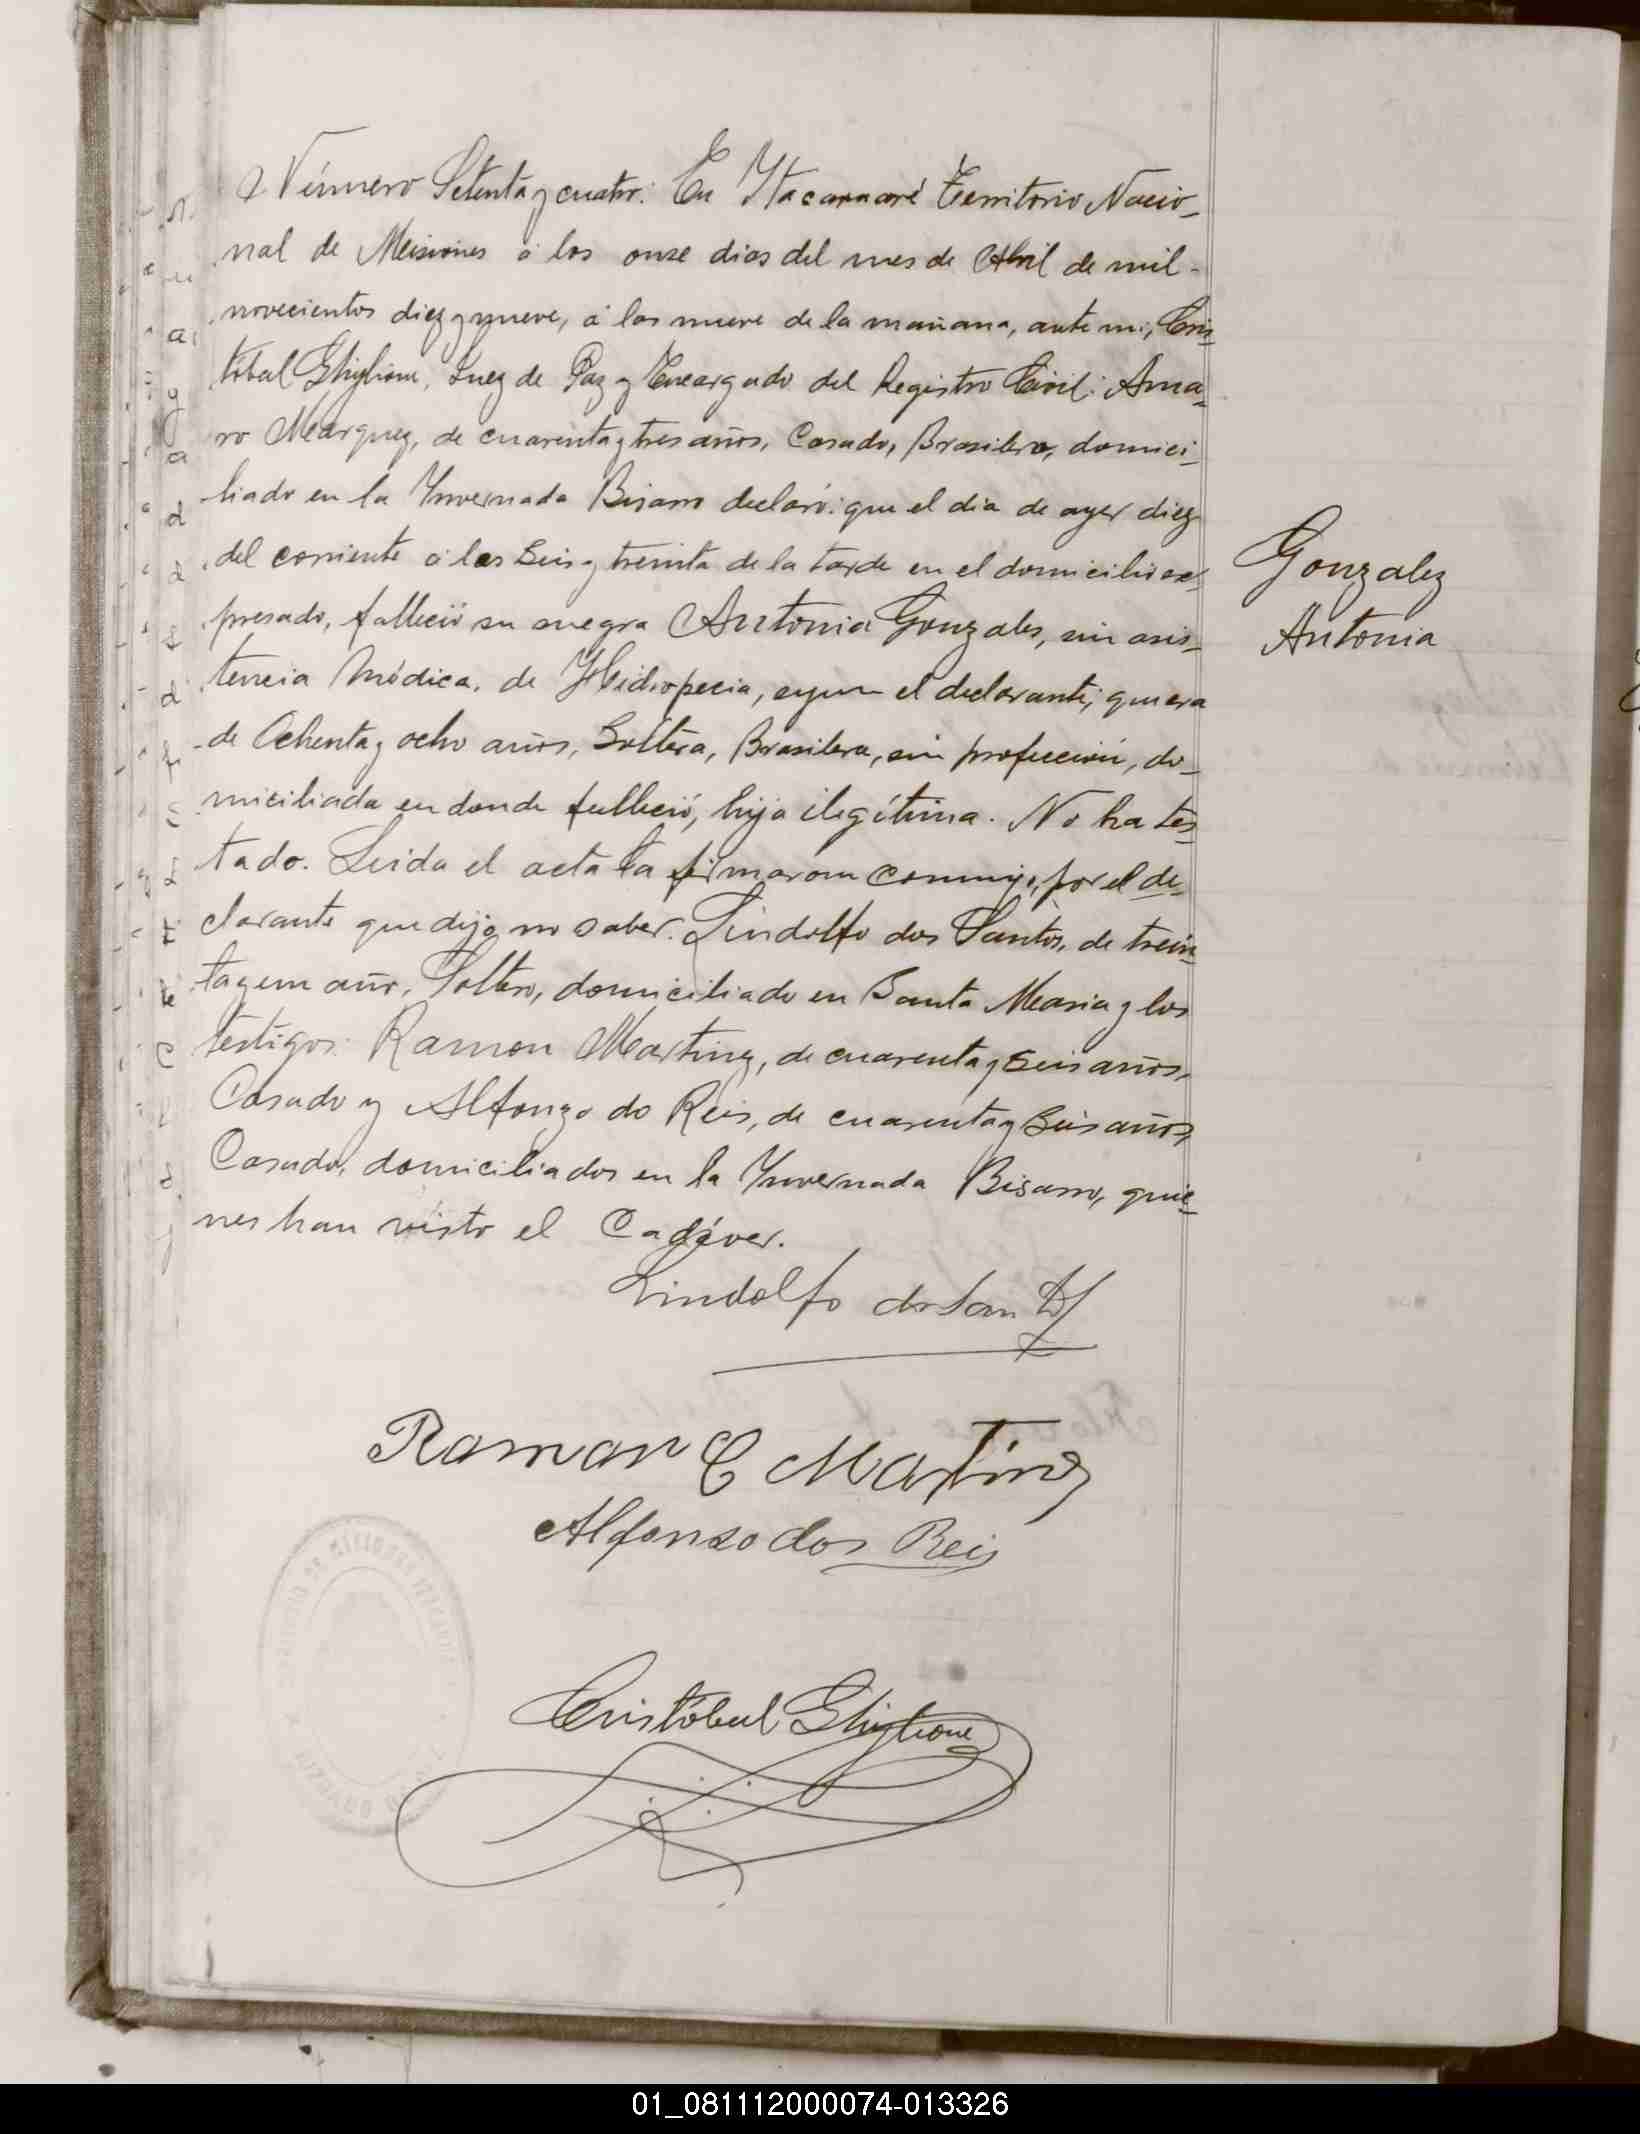 Número Setenta y cuatro: En Itacaruaré Territorio Nacio-
nal de Misiones á los onze dias del mes de Abril de mil-
novecientos diez y nueve, á las nueve de la mañana, ante mi, Cris-
tóbal Ghiglione, Juez de Paz y Encargado del Registro Civil: Ama-
ro Marquez, de cuarenta y tres años, Casado, Brasilero, domici-
liado en la Invernada Bisarro declaró: que el dia de ayer diez
del corriente á las Seis y treinta de la tarde en el domicilio ex-
presado, falleció su suegra Antonia Gonzales, sin asis-
tencia Médica, de Hidropecia, segun el declarante; que era
de Ochenta y ocho años, Soltera, Brasilera, sin profección, do-
miciliada en donde falleció, hija ilegítima. No ha tes-
tado. Leida el acta la firmaron conmigo, por el de-
clarante que dijo no saber. Lindolfo dos Santos, de trein-
ta y un año, Soltero, domiciliado en Santa Maria y los
testigos: Ramon Martinz, de cuarenta y Seis años,
Casado y Alfonzo do Reis, de cuarenta y Seis años,
Casado, domiciliados en la Invernada Bisarro, quie-
nes han visto el Cadáver.
Gonzalez
Antonia
Lindolfo dos Santos
Ramon C Martinz
Alfonso dos Reis
Cristóbal Ghiglione
01_081112000074-013326